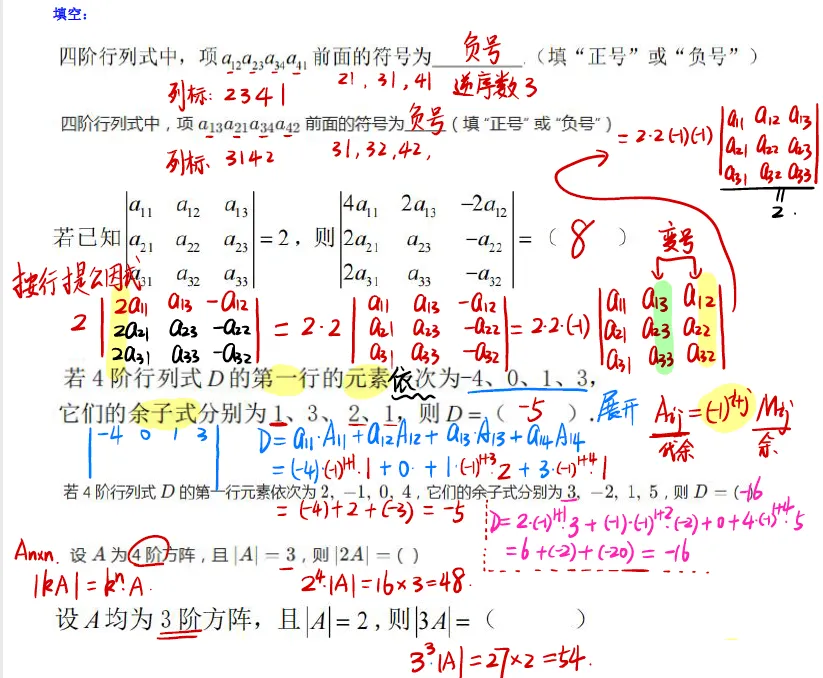 填空：
四阶行列式中，项 a₁₂a₂₃a₃₄a₄₁ 前面的符号为 负号 .（填“正号”或“负号”）
列标：2341 21，31，41 逆序数3
四阶行列式中，项 a₁₃a₂₁a₃₄a₄₂ 前面的符号为 负号（填“正号”或“负号”）
列标．3142 31，32，42，
= 2·2(-1)(-1) |a₁₁ a₁₂ a₁₃
a₂₁ a₂₂ a₂₃
a₃₁ a₃₂ a₃₃|
2．
若已知 |a₁₁ a₁₂ a₁₃
a₂₁ a₂₂ a₂₃
a₃₁ a₃₂ a₃₃| = 2，则 |4a₁₁ 2a₁₃ -2a₁₂
2a₂₁ a₂₃ -a₂₂
2a₃₁ a₃₃ -a₃₂| =（ 8 ）
变号
按行提公因式
2 |2a₁₁ a₁₃ -a₁₂
2a₂₁ a₂₃ -a₂₂
2a₃₁ a₃₃ -a₃₂| = 2·2 |a₁₁ a₁₃ -a₁₂
a₂₁ a₂₃ -a₂₂
a₃₁ a₃₃ -a₃₂| = 2·2·(-1) |a₁₁ a₁₃ a₁₂
a₂₁ a₂₃ a₂₂
a₃₁ a₃₃ a₃₂|
若 4 阶行列式 D 的第一行的元素依次为-4、0、1、3，
它们的余子式分别为 1、3、2、1，则 D =（ -5 ）．展开 Aᵢⱼ = (-1)ⁱ⁺ʲ Mᵢⱼ
代余 余．
|-4 0 1 3| D = a₁₁·A₁₁ + a₁₂A₁₂ + a₁₃·A₁₃ + a₁₄A₁₄
= (-4)·(-1)¹⁺¹·1 + 0 + 1·(-1)¹⁺³·2 + 3·(-1)¹⁺⁴·1
若 4 阶行列式 D 的第一行元素依次为 2, −1, 0, 4，它们的余子式分别为 3, −2, 1, 5，则 D = (-16
= (-4)+2+(-3) = -5
D = 2·(-1)¹⁺¹·3 + (-1)·(-1)¹⁺²·(-2) + 0 + 4·(-1)¹⁺⁴·5
= 6+(-2)+(-20) = -16
Anxn. 设 A 为 4 阶方阵，且 |A| = 3，则 |2A| = ( )
|kA| = kⁿ·A. 2⁴·|A| = 16×3 = 48.
设 A 均为 3 阶方阵，且 |A| = 2，则 |3A| =（ ）
3³·|A| = 27×2 = 54.